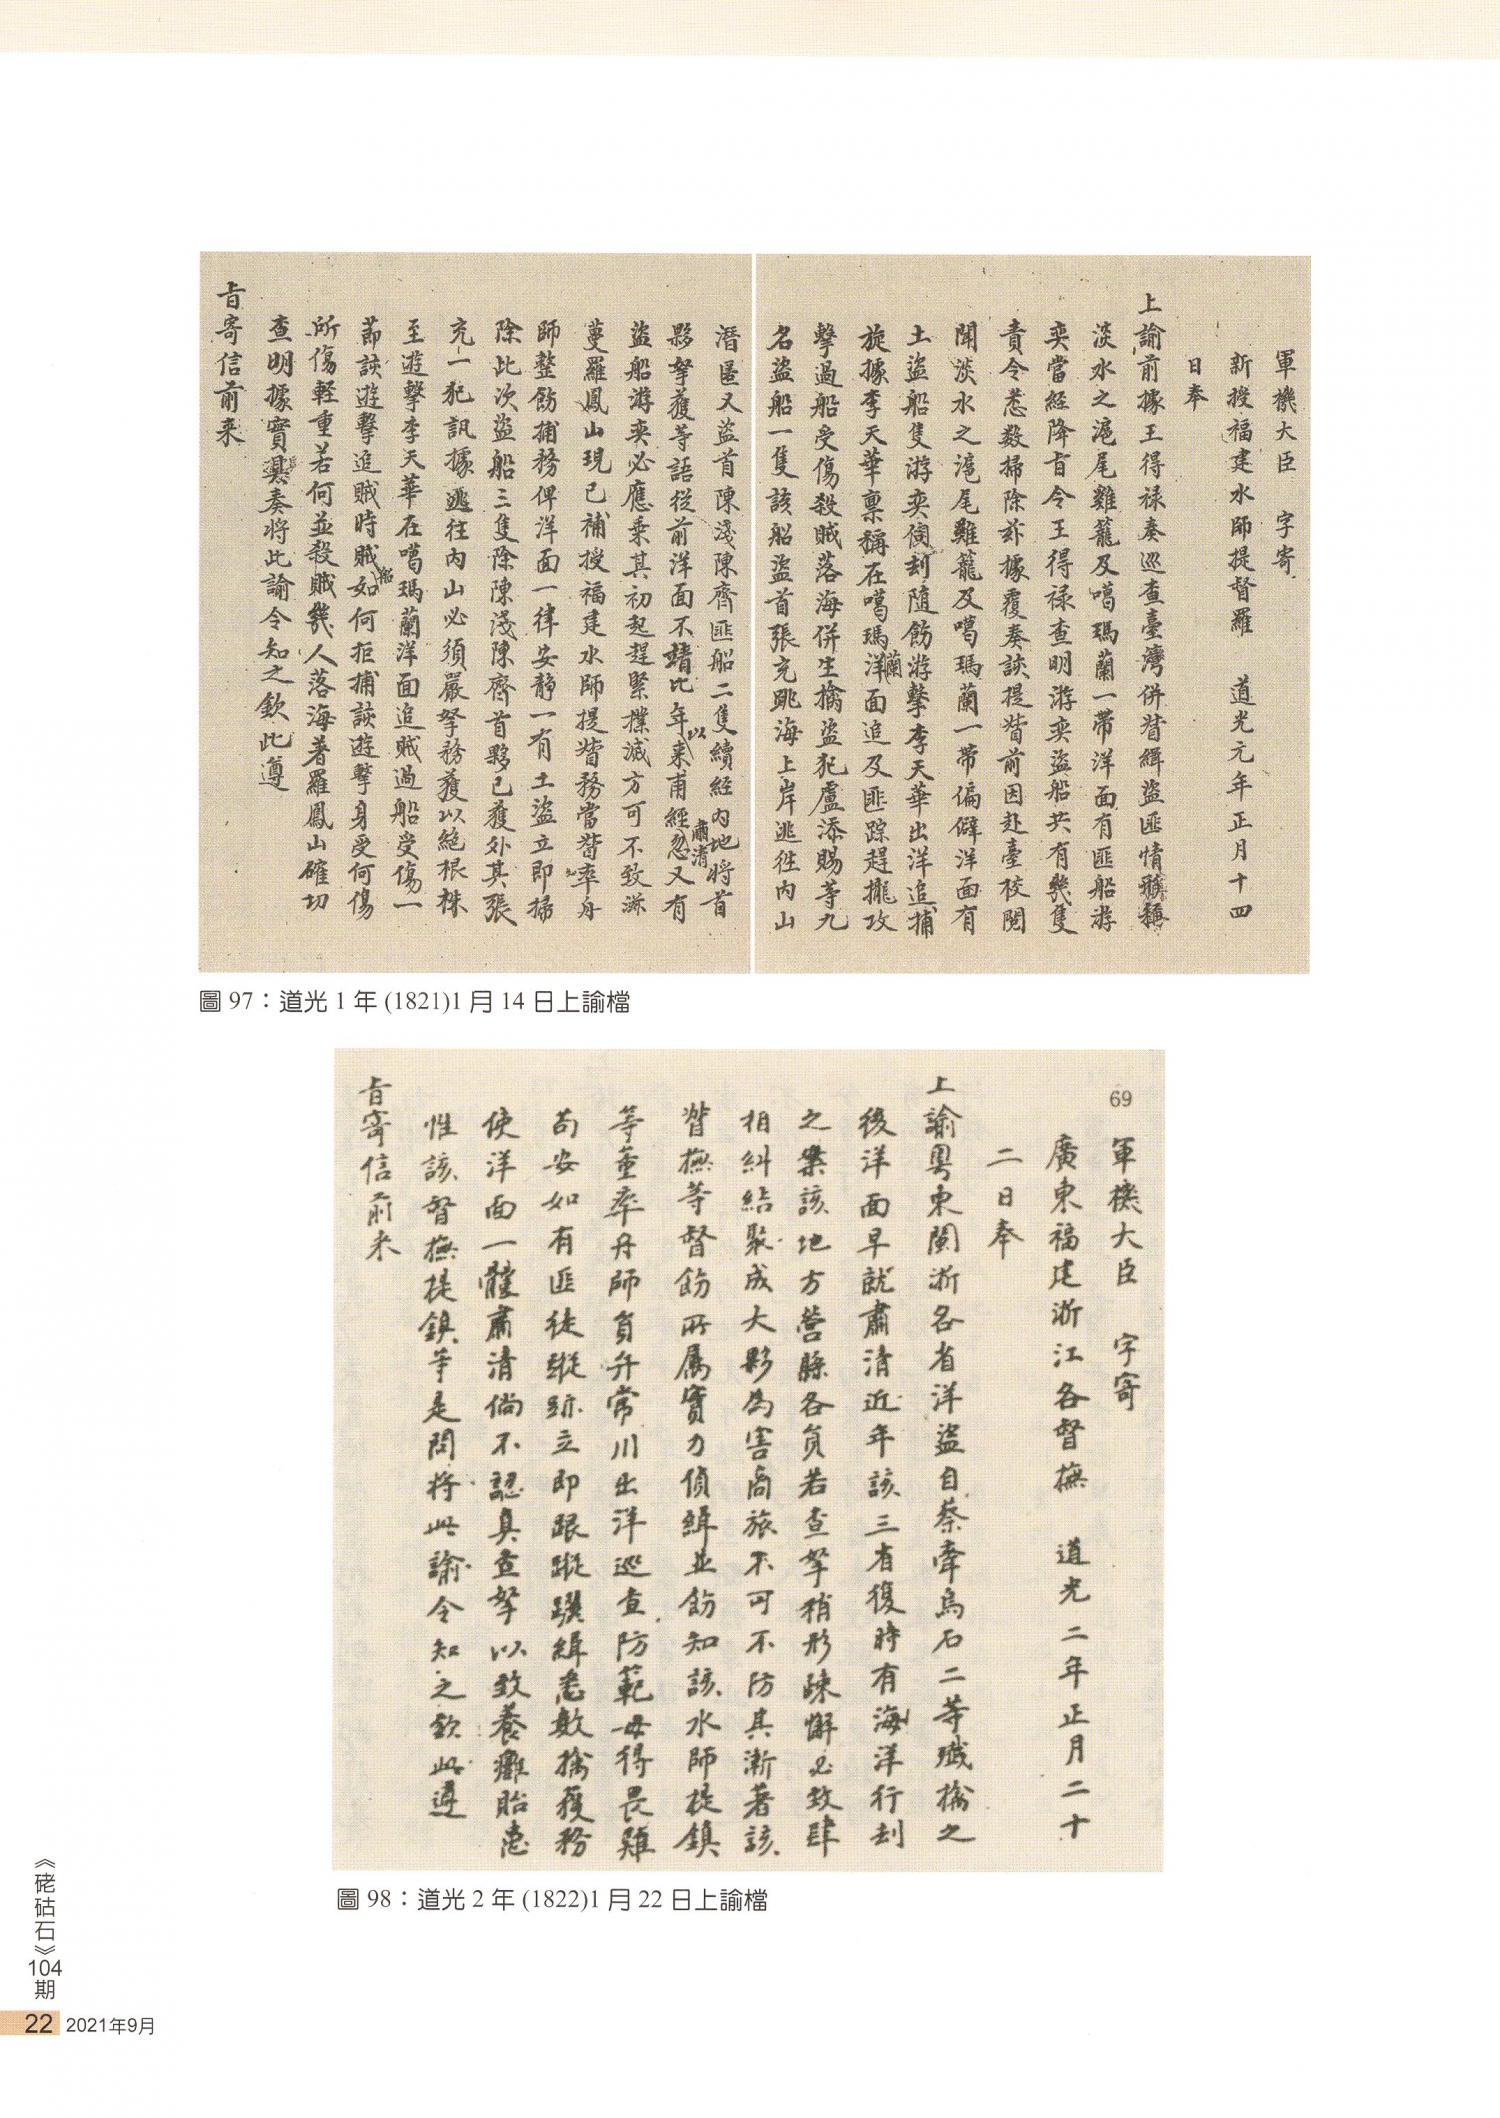 軍機大臣　字寄
新授福建水師提督羅　道光元年正月十四
日奉
上諭前據王得祿奏巡查臺灣併督緝盜匪情形稱
淡水之滬尾雞籠及噶瑪蘭一帶洋面有匪船游
奕當經降旨令王得祿查明游奕盜船共有幾隻
責令悉數掃除茲據覆奏該提督前因赴臺校閱
聞淡水之滬尾雞籠及噶瑪蘭一帶偏僻洋面有
土盜船隻游奕伺刦隨飭游擊李天華出洋追捕
旋據李天華稟稱在噶瑪蘭洋面追及匪踪趕攏攻
擊過船受傷殺賊落海併生擒盜犯盧添賜等九
名盜船一隻該船盜首張充跳海上岸逃往內山
潛匿又盜首陳淺陳齊匪船二隻續經內地將首
夥拏獲等語從前洋面不靖比年以來甫經肅清忽又有
盜船游奕必應乘其初起趕緊撲滅方可不致滋
蔓羅鳳山現已補授福建水師提督務當督率舟
師整飭捕務俾洋面一律安靜一有土盜立即掃
除此次盜船三隻除陳淺陳齊首夥已獲外其張
充一犯訊據逃往內山必須嚴拏務獲以絕根株
至遊擊李天華在噶瑪蘭洋面追賊過船受傷一
節該遊擊追賊時賊船如何拒捕該遊擊身受何傷
所傷輕重若何並殺賊幾人落海著羅鳳山確切
查明據實具奏將此諭令知之欽此遵
旨寄信前来
圖 97：道光 1 年 (1821)1 月 14 日上諭檔
69
軍機大臣　字寄
廣東福建浙江各督撫　道光二年正月二十
二日奉
上諭粵東閩浙各省洋盜自蔡牽烏石二等殲擒之
後洋面早就肅清近年該三省復時有海洋行刦
之案該地方營縣各員若查拏稍形疎懈必致肆
相糾結聚成大夥為害商旅不可不防其漸著該
督撫等督飭所屬實力偵緝並飭知該水師提鎮
等董率舟師員弁常川出洋巡查防範毋得畏難
苟安如有匪徒蹤跡立即跟蹤躧緝悉數擒獲務
使洋面一體肅清倘不認真查拏以致養癰貽患
惟該督撫提鎮等是問將此諭令知之欽此遵
旨寄信前来
圖 98：道光 2 年 (1822)1 月 22 日上諭檔
《硓𥑮石》104期
22 2021年9月